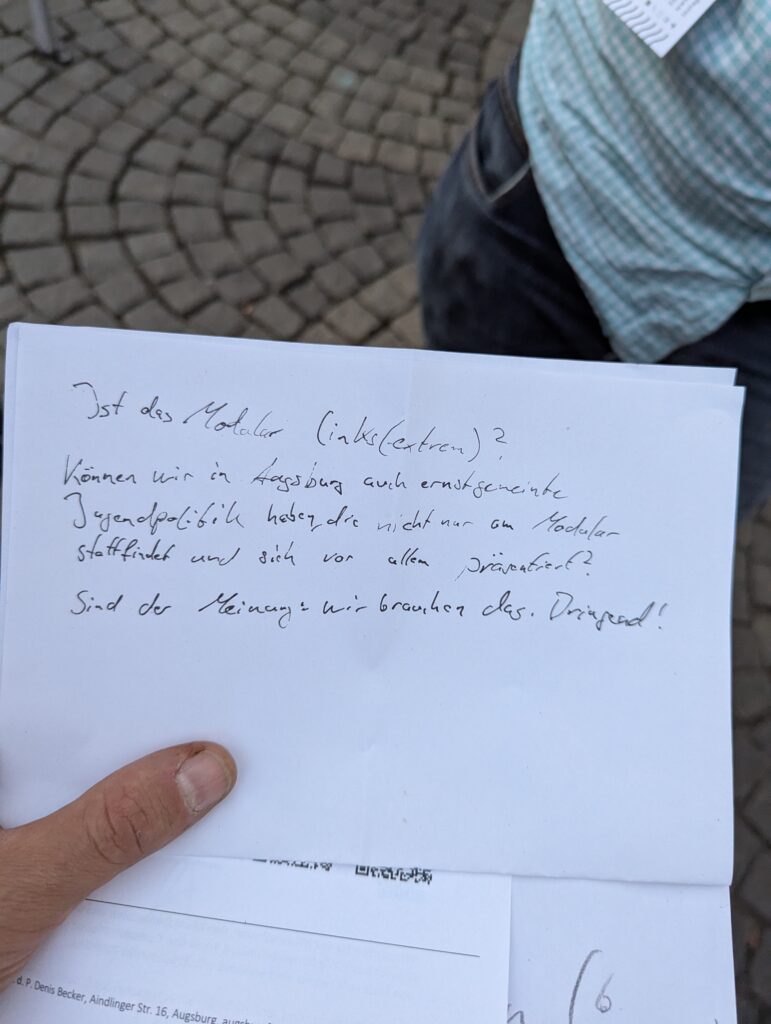 Ist das Modular links(extrem)?
Können wir in Augsburg auch ernstgemeinte
Jugendpolitik haben, die nicht nur am Modular
stattfindet und sich vor allem präsentiert?
Sind der Meinung: wir brauchen das. Dringend!
d. P. Denis Becker, Aindlinger Str. 16, Augsburg,